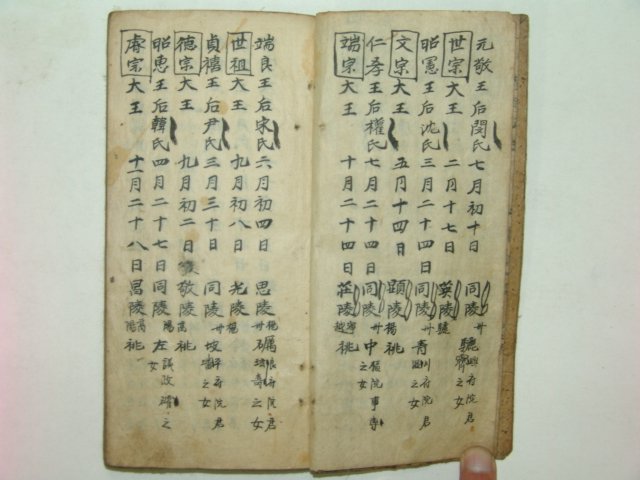 元敬王后閔氏七月初十日 同陵 驪興府院君霽之女
世宗大王 二月十七日 英陵 驪
昭憲王后沈氏三月二十四日 同陵 青川府院君溫之女
文宗大王 五月十四日 顯陵 楊 祧
仁孝王后權氏七月二十四日 同陵 中樞院事專之女
端宗大王 十月二十四日 莊陵 寧越 祧
端良王后宋氏六月初四日 思陵 楊 府院君玹壽之女
世祖大王 九月初八日 光陵 楊
貞禧王后尹氏三月三十日 同陵 坡平府院君璠之女
德宗大王 九月初二日 敬陵 高 祧
昭惠王后韓氏四月二十七日 同陵 左議政確之女
睿宗大王 十一月二十八日 昌陵 高陽 祧